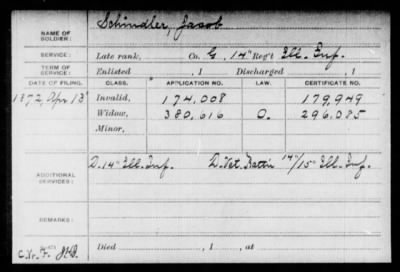 NAME OF SOLDIER: Schindler, Jacob
SERVICE: Late rank, Co. G, 14" Reg't Ill. Inf.
TERM OF SERVICE: Enlisted , 1 Discharged , 1
DATE OF FILING. CLASS. APPLICATION NO. LAW. CERTIFICATE NO.
1872, Apr 13 Invalid, 174,008 179,949
Widow, 380,616 O. 296.085
Minor,
ADDITIONAL SERVICES: D. 14" Ill. Inf. D. Vet. Batt'n 14"/15" Ill. Inf.
REMARKS:
Died , 1 , at